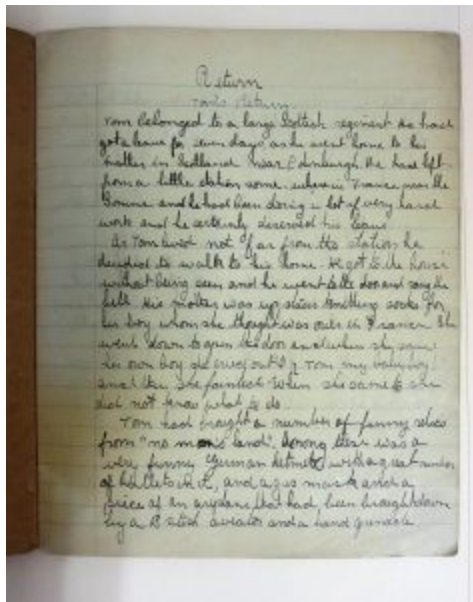 Return
Tom's Return.
Tom belonged to a large Scottish regiment He had
got a leave for seven days as he went home to his
mother in Scotland near Edinburgh. He had left
from a little station some where in France near the
Somme and he had been doing a lot of very hard
work and he certainly deserved his leave.
As Tom lived not far from the station he
decided to walk to his home. He got to the house
without being seen and he went to the door and rang the
bell His mother was up stairs knitting socks for
her boy whom she thought was over in France. She
went down to open the door and when she saw
her own boy she cried out Tom my
and then she fainted. When she came to she
did not know what to do.
Tom had brought a number of funny
from "no mans land". Among them was a
very funny German helmet with a great number
of bullets in it, and a gas mask and a
piece of an airplane that had been brought down
by a British aviator and a hand